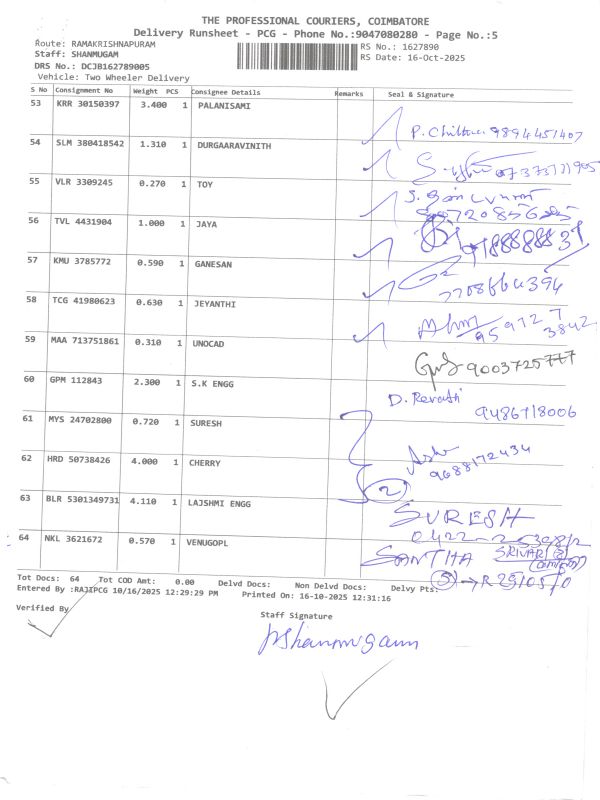 THE PROFESSIONAL COURIERS, COIMBATORE
Delivery Runsheet - PCG - Phone No.:9047080280 - Page No.:5
Route: RAMAKRISHNAPURAM RS No.: 1627890
Staff: SHANMUGAM RS Date: 16-Oct-2025
DRS No.: DCJB162789005
Vehicle: Two Wheeler Delivery
S No Consignment No Weight PCS Consignee Details Remarks Seal & Signature
53 KRR 30150397 3.400 1 PALANISAMI
9894451407
54 SLM 380418542 1.310 1 DURGAARAVINITH
55 VLR 3309245 0.270 1 TOY
56 TVL 4431904 1.000 1 JAYA
57 KMU 3785772 0.590 1 GANESAN
7708664394
58 TCG 41980623 0.630 1 JEYANTHI
959727
3842
59 MAA 713751861 0.310 1 UNOCAD
9003725777
60 GPM 112843 2.300 1 S.K ENGG
D. Revathi
9486718006
61 MYS 24702800 0.720 1 SURESH
62 HRD 50738426 4.000 1 CHERRY
9688172434
2
63 BLR 5301349731 4.110 1 LAJSHMI ENGG
SURESH
64 NKL 3621672 0.570 1 VENUGOPL
SANTHA
Tot Docs: 64 Tot COD Amt: 0.00 Delvd Docs: Non Delvd Docs: Delvy Pts:
Entered By :RAJIPCG 10/16/2025 12:29:29 PM Printed On: 16-10-2025 12:31:16
Verified By
Staff Signature
Shanmugam